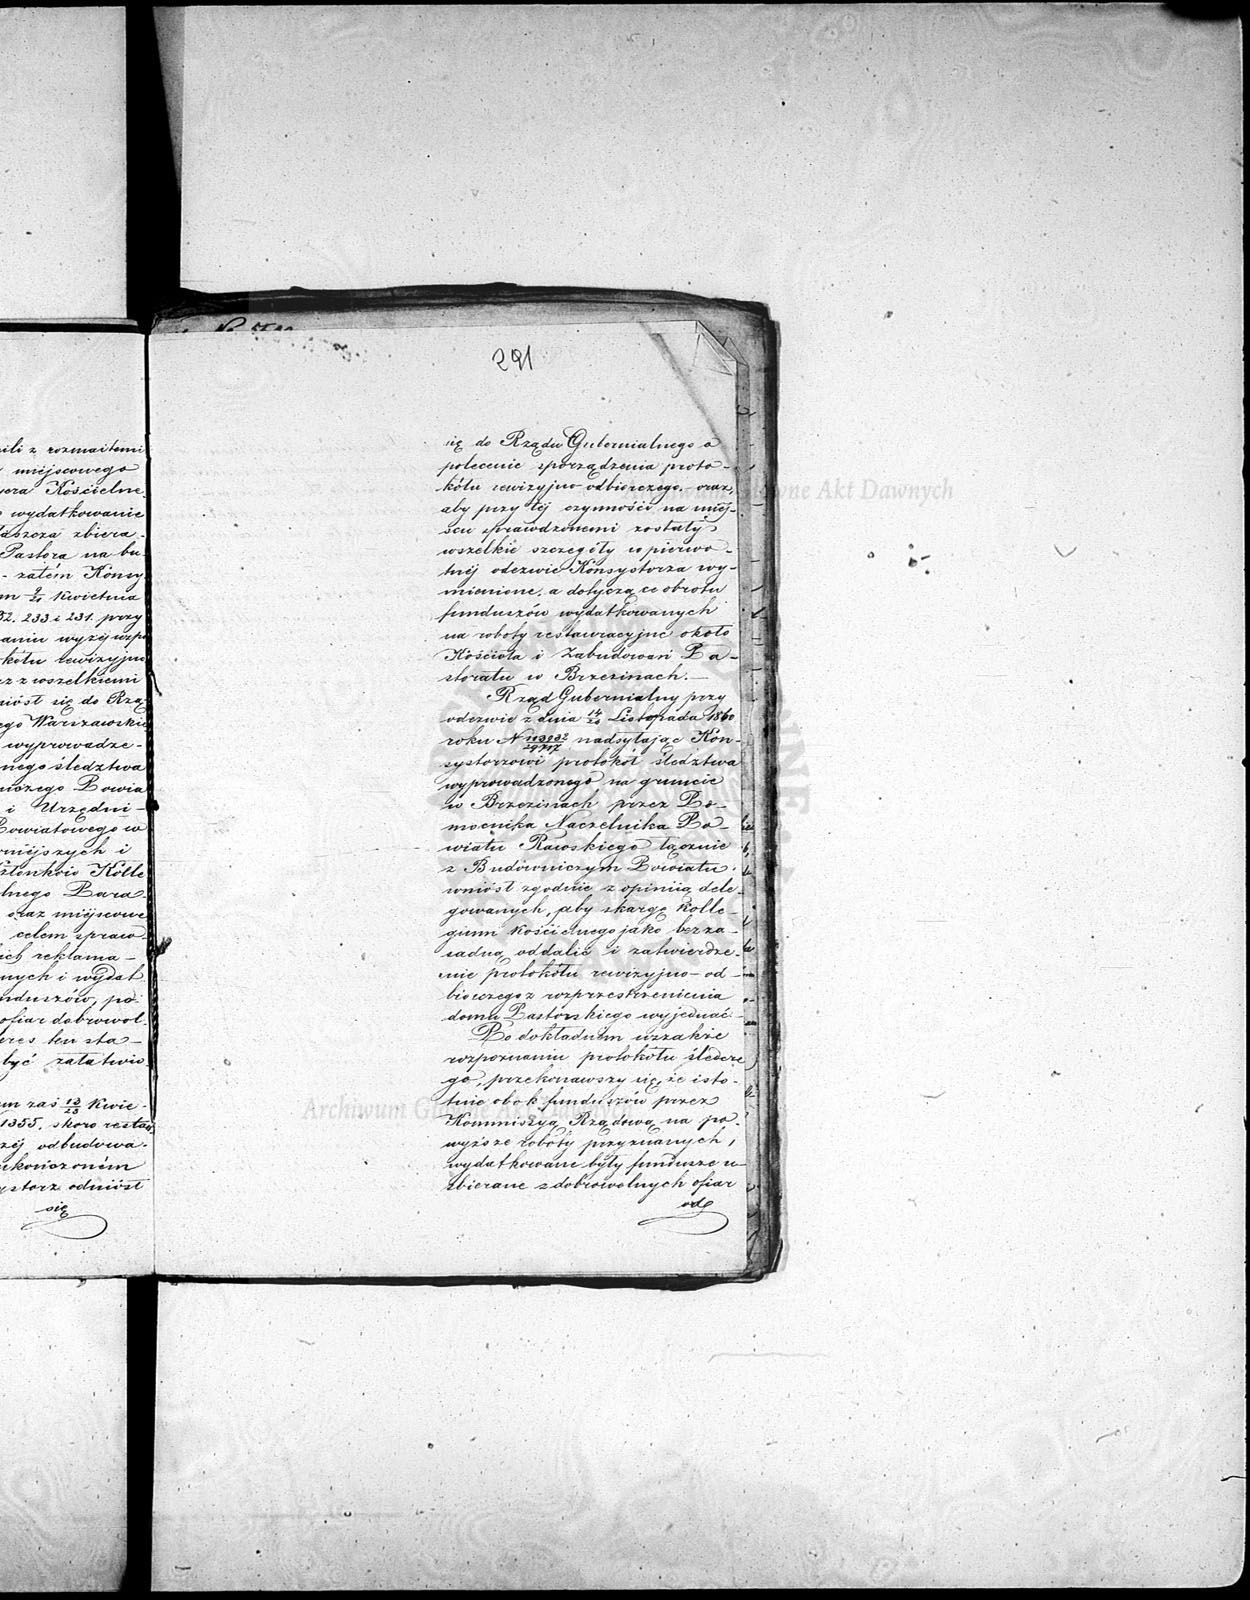 ili z rozmaitemi
miejscowego
Kościelne
wydatkowanie
zbiera-
Pastora na bu-
- zatém Konsy
kwietnia
232. 233 i 231. przy
wyżej wspo
kółu rewizyjno
z wszelkiemi
niósł się do Rzą-
ego Warszawskie
wyprowadze-
nego śledztwa
Powia
i Urzędni-
Powiatowego w
i
Członków Kolle
lnego Para-
oraz miejscowe
celem spraw-
ich reklama-
nych i wydat
nduszów, po-
ofiar dobrowol-
eres ten sta-
być załatwio
zaś 13/25 Kwie-
1855. skoro restau
zéj odbudowa-
ukończoném
ystorz odniósł
się
291
się do Rządu Gubernialnego o
polecenie sporządzenia proto-
kółu rewizyjno-odbiorczego, oraz,
aby przy téj czynności na miej-
scu sprawdzonemi zostały
wszelkie szczegóły w pierwo-
tnéj odezwie Konsystorza wy-
mienione, a dotyczące obrotu
funduszów wydatkowanych
na roboty restauracyjne około
Kościoła i Zabudowań Pa-
storatu w Brzezinach.—
Rząd Gubernialny przy
odezwie z dnia Listopada 1860
roku N nadsyłając Kon-
systorzowi protokół śledztwa
wyprowadzonego na gruncie
w Brzezinach przez Po-
mocnika Naczelnika Po-
wiatu Rawskiego łącznie
z Budowniczym Powiatu
wniósł zgodnie z opiniią dele-
gowanych, aby skargę Kolle-
gium Kościelnego jako bezza-
sadną oddalić i zatwierdze-
nie protokółu rewizyjno-od-
biorczego z rozprzestrzenienia
domu Pastorskiego wyjednać.
Po dokładném wszakże
rozpoznaniu protokółu śledcze
go, przekonawszy się, że isto-
tnie obok funduszów przez
Kommissyą Rządową na po-
wyższe roboty przyznanych,
wydatkowane były fundusze u-
zbierane z dobrowolnych ofiar
od
Archiwum Główne Akt Dawnych
Archiwum Główne Akt Dawnych